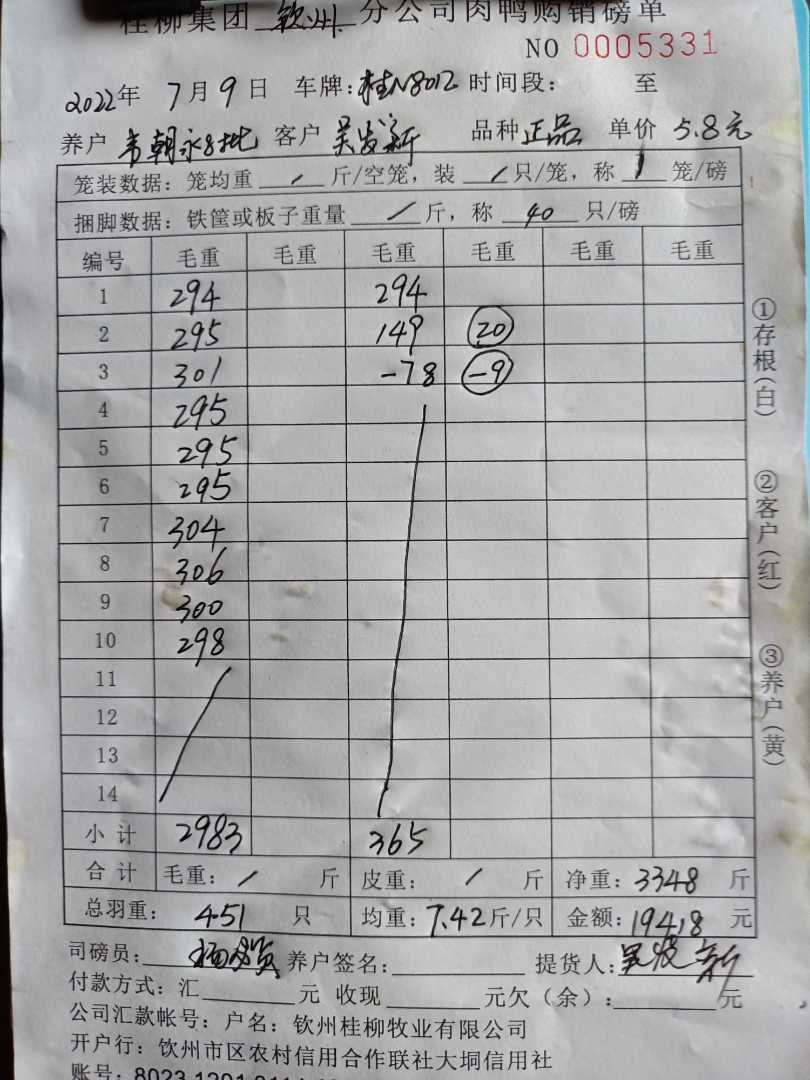 桂柳集团 钦州 分公司肉鸭购销磅单
NO 0005331
2022年 7月9日 车牌:桂N8012 时间段: 至
养户 韦朝永8批 客户 吴发新 品种 正品 单价 5.8元
笼装数据: 笼均重 / 斤/空笼, 装 / 只/笼, 称 / 笼/磅
捆脚数据: 铁筐或板子重量 / 斤, 称 40 只/磅
编号 毛重 毛重 毛重 毛重 毛重 毛重
1 294 294
2 295 149 20
3 301 -78 -9
4 295
5 295
6 295
7 304
8 306
9 300
10 298
11
12
13
14
小计 2983 365
合计 毛重: / 斤 皮重: / 斤 净重: 3348 斤
总羽重: 451 只 均重: 7.42斤/只 金额: 19418 元
司磅员: 养户签名: 提货人: 吴发新
付款方式: 汇 元 收现 元欠(余): 元
公司汇款帐号: 户名: 钦州桂柳牧业有限公司
开户行: 钦州市区农村信用合作联社大垌信用社
账号: 8023 1201
①存根(白)
②客户(红)
③养户(黄)